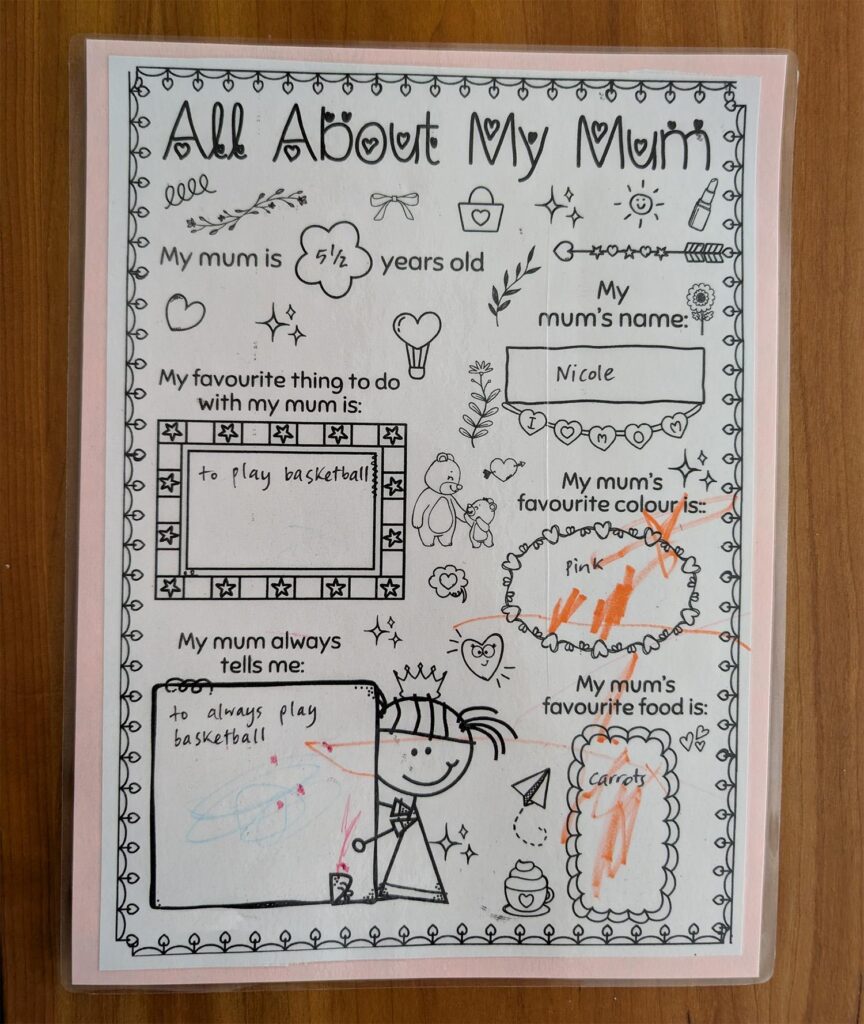 All About My Mum
My mum is 5 1/2 years old
My
mum's name:
Nicole
I MOM
My favourite thing to do
with my mum is:
to play basketball
My mum's
favourite colour is::
pink
My mum always
tells me:
to always play
basketball
My mum's
favourite food is:
carrots